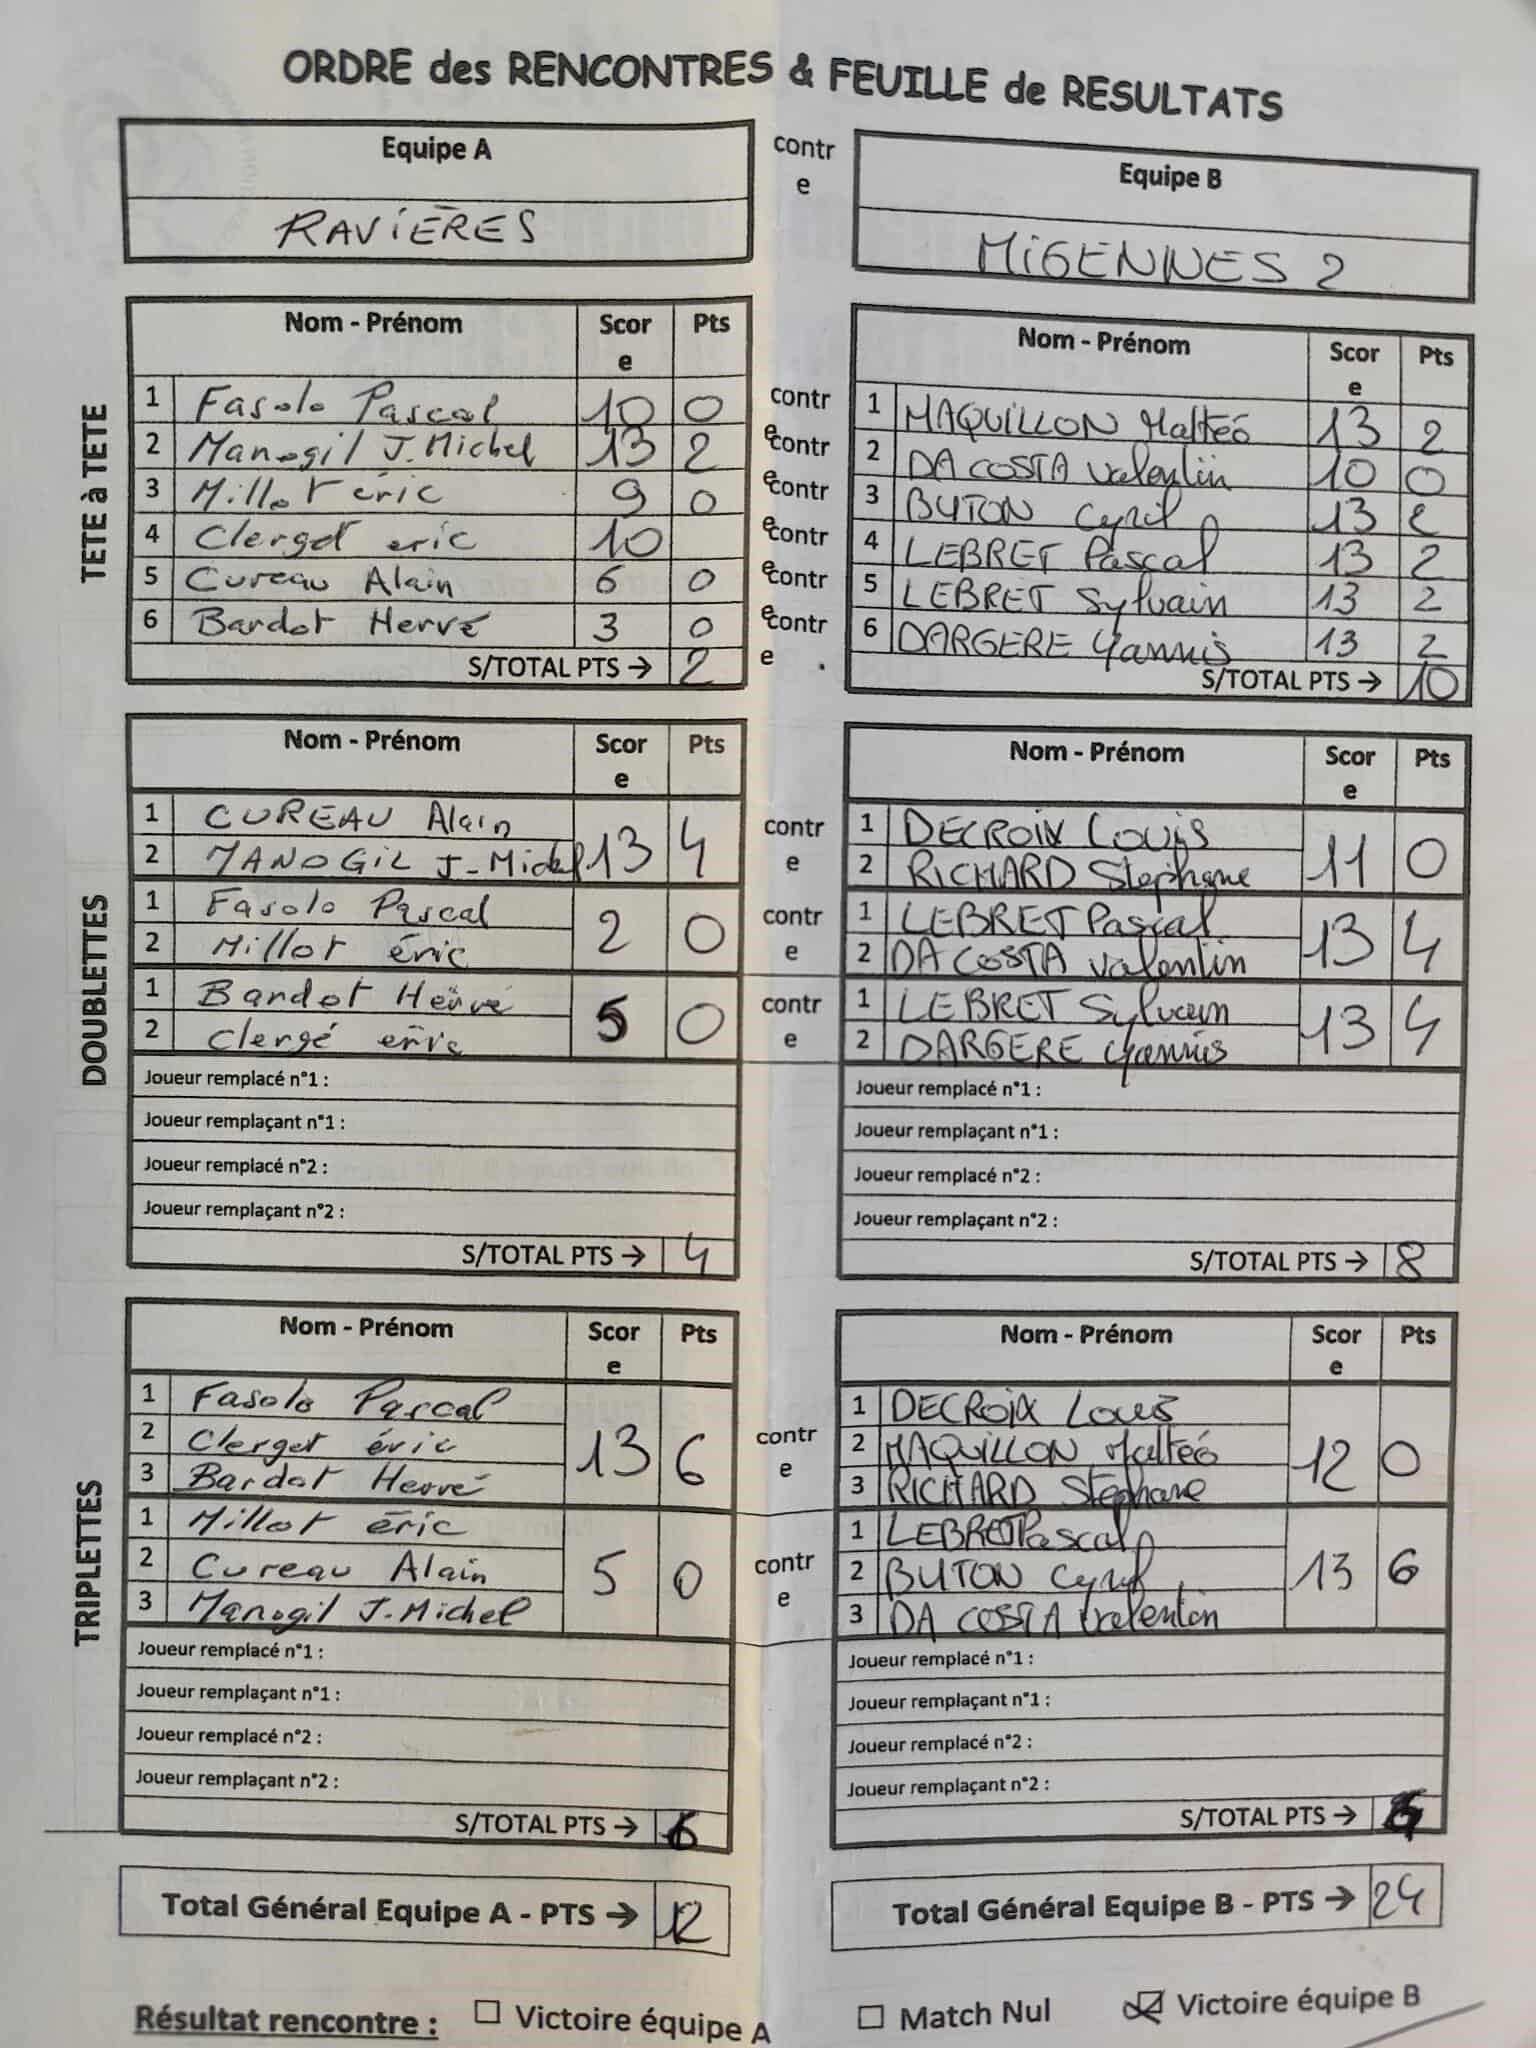 ORDRE des RENCONTRES & FEUILLE de RESULTATS
Equipe A
RAVIÈRES
contr
e
Equipe B
MIGENNES 2
TETE à TETE
Nom - Prénom Scor e Pts
1 Fasolo Pascal 10 0
2 Manogil J.Michel 13 2
3 Millot éric 9 0
4 Clerget eric 10
5 Cureau Alain 6 0
6 Bardot Hervé 3 0
S/TOTAL PTS → 2
contr
e
contr
e
contr
e
contr
e
contr
e
contr
e
Nom - Prénom Scor e Pts
1 MAQUILLON Maltéo 13 2
2 DA COSTA Valentin 10 0
3 BUTON Cyril 13 2
4 LEBRET Pascal 13 2
5 LEBRET Sylvain 13 2
6 DARGERE Yannis 13 2
S/TOTAL PTS → 10
DOUBLETTES
Nom - Prénom Scor e Pts
1 CUREAU Alain
2 MANOGIL J-Michel 13 4
1 Fasolo Pascal
2 Millot éric 2 0
1 Bardot Hervé
2 Clergé eric 5 0
Joueur remplacé n°1 :
Joueur remplaçant n°1 :
Joueur remplacé n°2 :
Joueur remplaçant n°2 :
S/TOTAL PTS → 4
contr
e
contr
e
contr
e
Nom - Prénom Scor e Pts
1 DECROIX Louis
2 RICHARD Stephane 11 0
1 LEBRET Pascal
2 DA COSTA Valentin 13 4
1 LEBRET Sylvain
2 DARGERE Yannis 13 4
Joueur remplacé n°1 :
Joueur remplaçant n°1 :
Joueur remplacé n°2 :
Joueur remplaçant n°2 :
S/TOTAL PTS → 8
TRIPLETTES
Nom - Prénom Scor e Pts
1 Fasolo Pascal
2 Clerget éric 13 6
3 Bardot Hervé
1 Millot éric
2 Cureau Alain 5 0
3 Manogil J.Michel
Joueur remplacé n°1 :
Joueur remplaçant n°1 :
Joueur remplacé n°2 :
Joueur remplaçant n°2 :
S/TOTAL PTS → 6
contr
e
contr
e
Nom - Prénom Scor e Pts
1 DECROIX Louis
2 MAQUILLON Maltéo 12 0
3 RICHARD Stephane
1 LEBRET Pascal
2 BUTON Cyril 13 6
3 DA COSTA Valentin
Joueur remplacé n°1 :
Joueur remplaçant n°1 :
Joueur remplacé n°2 :
Joueur remplaçant n°2 :
S/TOTAL PTS →
Total Général Equipe A - PTS → 12
Total Général Equipe B - PTS → 24
Résultat rencontre : ☐ Victoire équipe A ☐ Match Nul ☑ Victoire équipe B